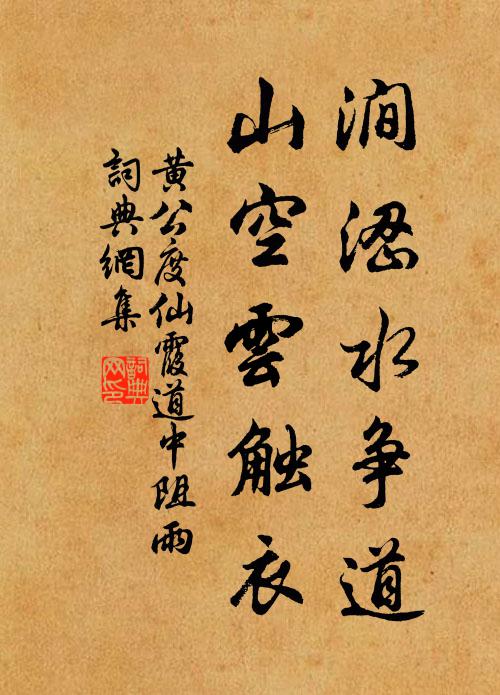 澗水争道
山空雲触衣
黄公度仙霞道中阻雨
詞典網集
詞典网印